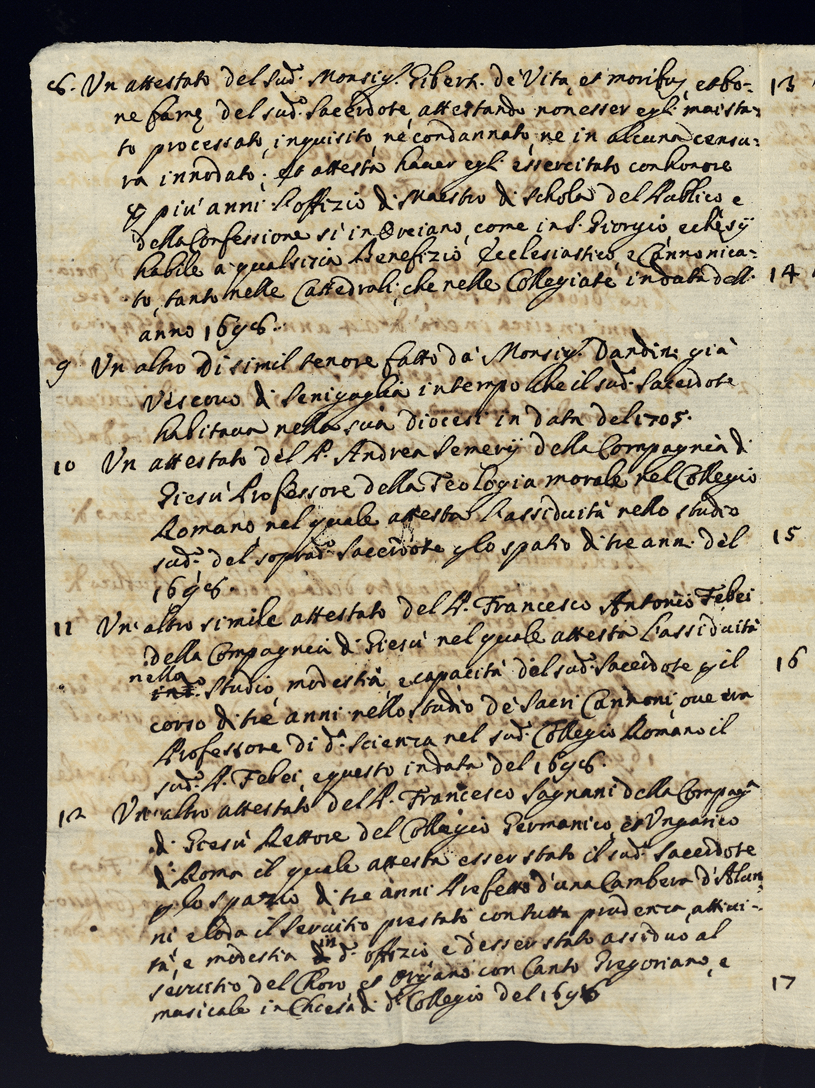 8. Un attestato del sud.º Monsig.r Gibert. de Vita, et moribus, et bo-
ne fame del sud.º Sacerdote, attestando non esser egli mai sta-
to processato, inquisito, ne condannato, ne in alcuna censu-
ra innodato; et attesta haver egli essercitato con honore
p più anni l'offizio di Maestro di Schola del Publico e
della Confessione sì in Orciano, come in S. Giorgio, e ch'è sij
habile a qualsisia Benefizio Ecclesiastico, e Cannonica-
to, tanto nelle Cattedrali, che nelle Collegiate in data dell'
anno 1698.
9 Un altro di simil tenore fatto da Monsig.r Dandini già
Vescovo di Senigaglia in tempo che il sud.º Sacerdote
habitava nella sua diocesi in data del 1705.
10 Un attestato del P. Andrea Semerij della Compagnia di
Giesù Professore della Teologia morale nel Collegio
Romano nel quale attesta l'assiduità nello studio
sud.º del soprad.º Sacerdote p lo spatio di tre anni del
1696.
11 Un' altro simile attestato del P. Francesco Antonio Febei
della Compagnia di Giesù nel quale attesta l'assiduità
nella
Studio modestia e capacità del sud.º Sacerdote p il
corso di tre anni nello studio de Sacri Cannoni, ove era
Professore di d.a Scienza nel sud.º Collegio Romano il
sud.º P. Febei, e questo in data del 1696.
12 Un' altro attestato del P. Francesco Sagnani della Compag.a
di Giesù Rettore del Collegio Germanico, et Ungarico
di Roma il quale attesta esser stato il sud.º Sacerdote
p lo spazio di tre anni Prefetto d'una Cambera d'Alun-
ni e loda il Servitio prestato con tutta prudenza, attivi-
tà, e modestia in d.º offizio e d'esser stato assiduo al
servitio del Choro et Organo con Canto Gregoriano, e
musicale in Chiesa di d.º Collegio del 1696
13
14
15
16
17